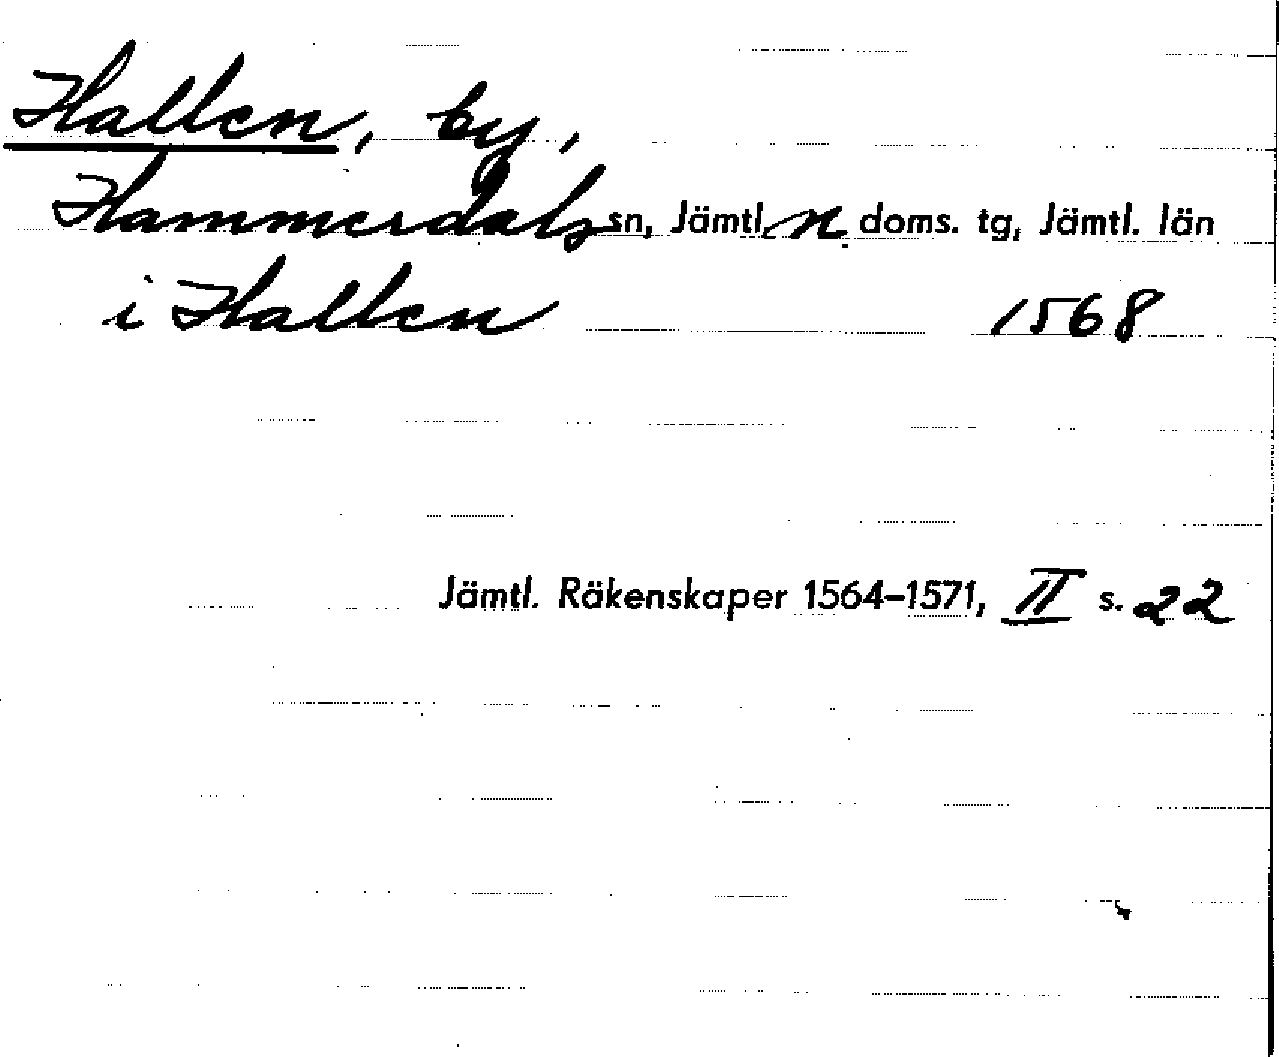 Hallen, by,
Hammerdals sn, Jämtl. n. doms. tg, Jämtl. län
i Hallen 1568
Jämtl. Räkenskaper 1564–1571, II s. 22